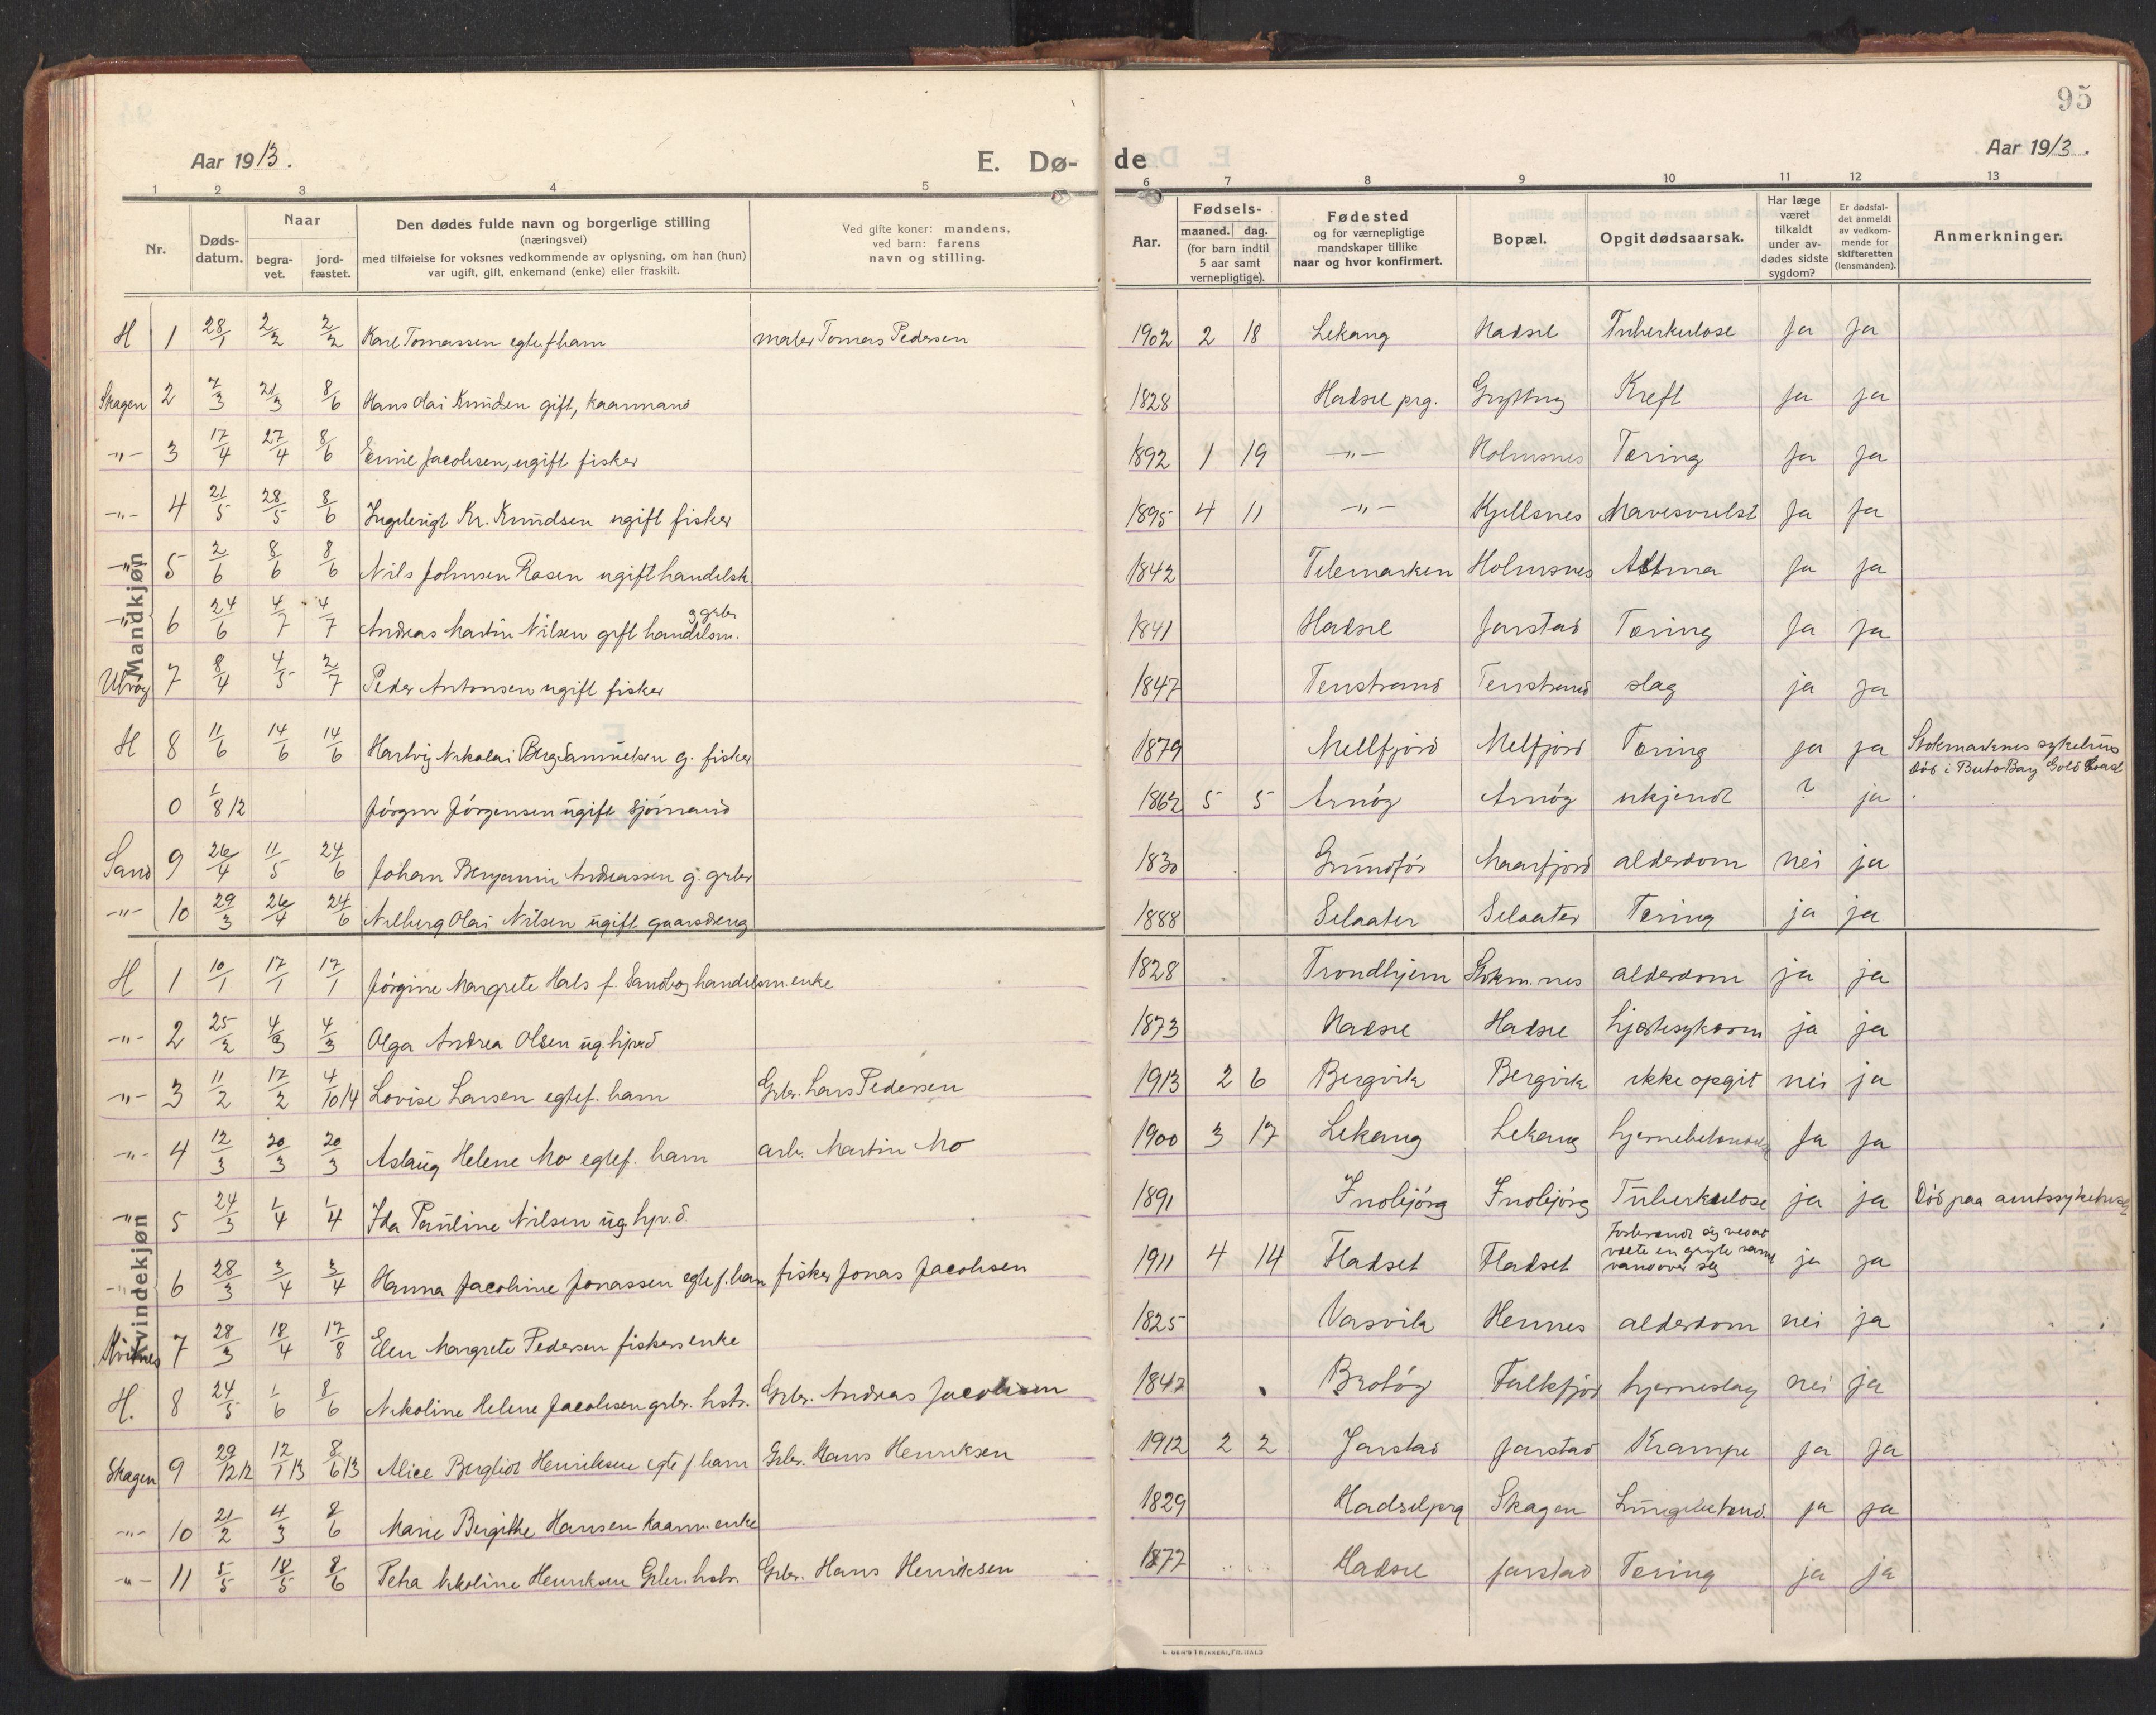 95
Aar 1913.
E. Dø- de
Aar 1913.
1 2 3 4 5 6 7 8 9 10 11 12 13
Nr. Døds-datum. Naar begra-vet. jord-fæstet. Den dødes fulde navn og borgerlige stilling (næringsvei) med tilføielse for voksnes vedkommende av oplysning, om han (hun) var ugift, gift, enkemand (enke) eller fraskilt. Ved gifte koner: mandens, ved barn: farens navn og stilling. Aar. Fødsels- maaned. dag. (for barn indtil 5 aar samt vernepligtige). Fødested og for værnepligtige mandskaper tillike naar og hvor konfirmert. Bopæl. Opgit dødsaarsak. Har læge været tilkaldt under av-dødes sidste sygdom? Er dødsfal-det anmeldt av vedkom-mende for skifteretten (lensmanden). Anmerkninger.
Mandkjøn
H 1 28/1 2/2 2/2 Karl Tomassen egtef barn maler Tomas Pedersen 1902 2 18 Lekang Hadsel Tuberkulose Ja Ja
Skagen 2 7/3 21/3 8/6 Hans Olai Knudsen gift, kaarmand 1828 Hadsel prg. Gryttng Kreft Ja Ja
-"- 3 17/4 27/4 8/6 Emil Jacobsen, ugift fisker 1892 1 19 -"- Holmsnes Tæring Ja Ja
-"- 4 21/5 28/5 8/6 Ingebrigt Kr. Knudsen ugift fisker 1895 4 11 -"- Kjellsnes Mavesvulst Ja Ja
-"- 5 2/6 8/6 8/6 Nils Johnsen Rosen ugift handelsk. 1842 Telemarken Holmsnes Astma Ja Ja
-"- 6 24/6 4/7 4/7 Andreas Martin Nilsen gift handelsm. g grbr 1841 Hadsel Jarstad Tæring Ja Ja
Ulvøy 7 8/4 4/5 2/7 Peder Antonsen ugift fisker 1847 Tenstrand Tenstrand slag ja ja
H 8 11/6 14/6 14/6 Hartvig Nikolai Berg Samuelsen g. fisker 1879 Mellfjord Melfjord Tæring ja ja Stokmarknes sykehus
0 1/8 12 Jørgen Jørgensen ugift sjømand 1862 5 5 Arnøy Arnøy ukjendt ? ja død i Buto Bay Gold Coast
Sand 9 26/4 11/5 24/6 Johan Benjamin Andreassen g. grbr 1830 Grundfør Maarfjord alderdom nei ja
-"- 10 29/3 26/4 24/6 Nilberg Olai Nilsen ugift gaardsdreng 1888 Selaater Selaater Tæring ja ja
Kvindekjøn
H 1 10/1 17/1 17/1 Jørgine Margrete Hals f. Sandbog handelsm. enke 1828 Trondhjem Stokm.nes alderdom ja ja
-"- 2 25/2 4/3 4/3 Olga Andrea Olsen ug. hp.d 1873 Hadsel Hadsel hjertesykdom ja ja
-"- 3 11/2 17/2 4/10 14 Lovise Larsen egtef. barn Grbr. Lars Pedersen 1913 2 6 Bergvik Bergvik ikke opgit nei ja
-"- 4 12/3 20/3 20/3 Aslaug Helene Mo egtef. barn arb. Martin Mo 1900 3 17 Lekang Lekang hjernebetændelse Ja Ja
-"- 5 24/3 1/4 1/4 Ida Pauline Nilsen ug hp.d. 1891 Innbjørg Innbjørg Tuberkulose ja ja Død paa amtssykehuset
-"- 6 28/3 3/4 3/4 Hanna Jacobine Jonassen egtef. barn fisker Jonas Jacobsen 1911 4 14 Fladset Fladset Forbrændt sig ved at vælte en gryte varmt vand over sig ja ja
Kvitnes 7 28/3 18/4 17/8 Elen Margrete Pedersen fiskers enke 1825 Vasvik Hennes alderdom nei ja
H. 8 24/5 1/6 8/6 Nikoline Helene Jacobsen grbr. hstr. Grbr. Andreas Jacobsen 1847 Brotøy Falkfjord hjerneslag nei ja
Skagen 9 29/12 12 12/1 13 8/6 13 Alice Bergliot Henriksen egtef barn Grbr. Hans Henriksen 1912 2 2 Jarstad Jarstad Krampe ja ja
-"- 10 21/2 4/3 8/6 Marie Bergitte Hansen kaarm. enke 1829 Hadselprg Skagen Lungebetænd. ja ja
-"- 11 5/5 18/5 8/6 Petra Nikoline Henriksen Grbr. hstr. Grbr. Hans Henriksen 1877 Hadsel Jarstad Tæring ja ja